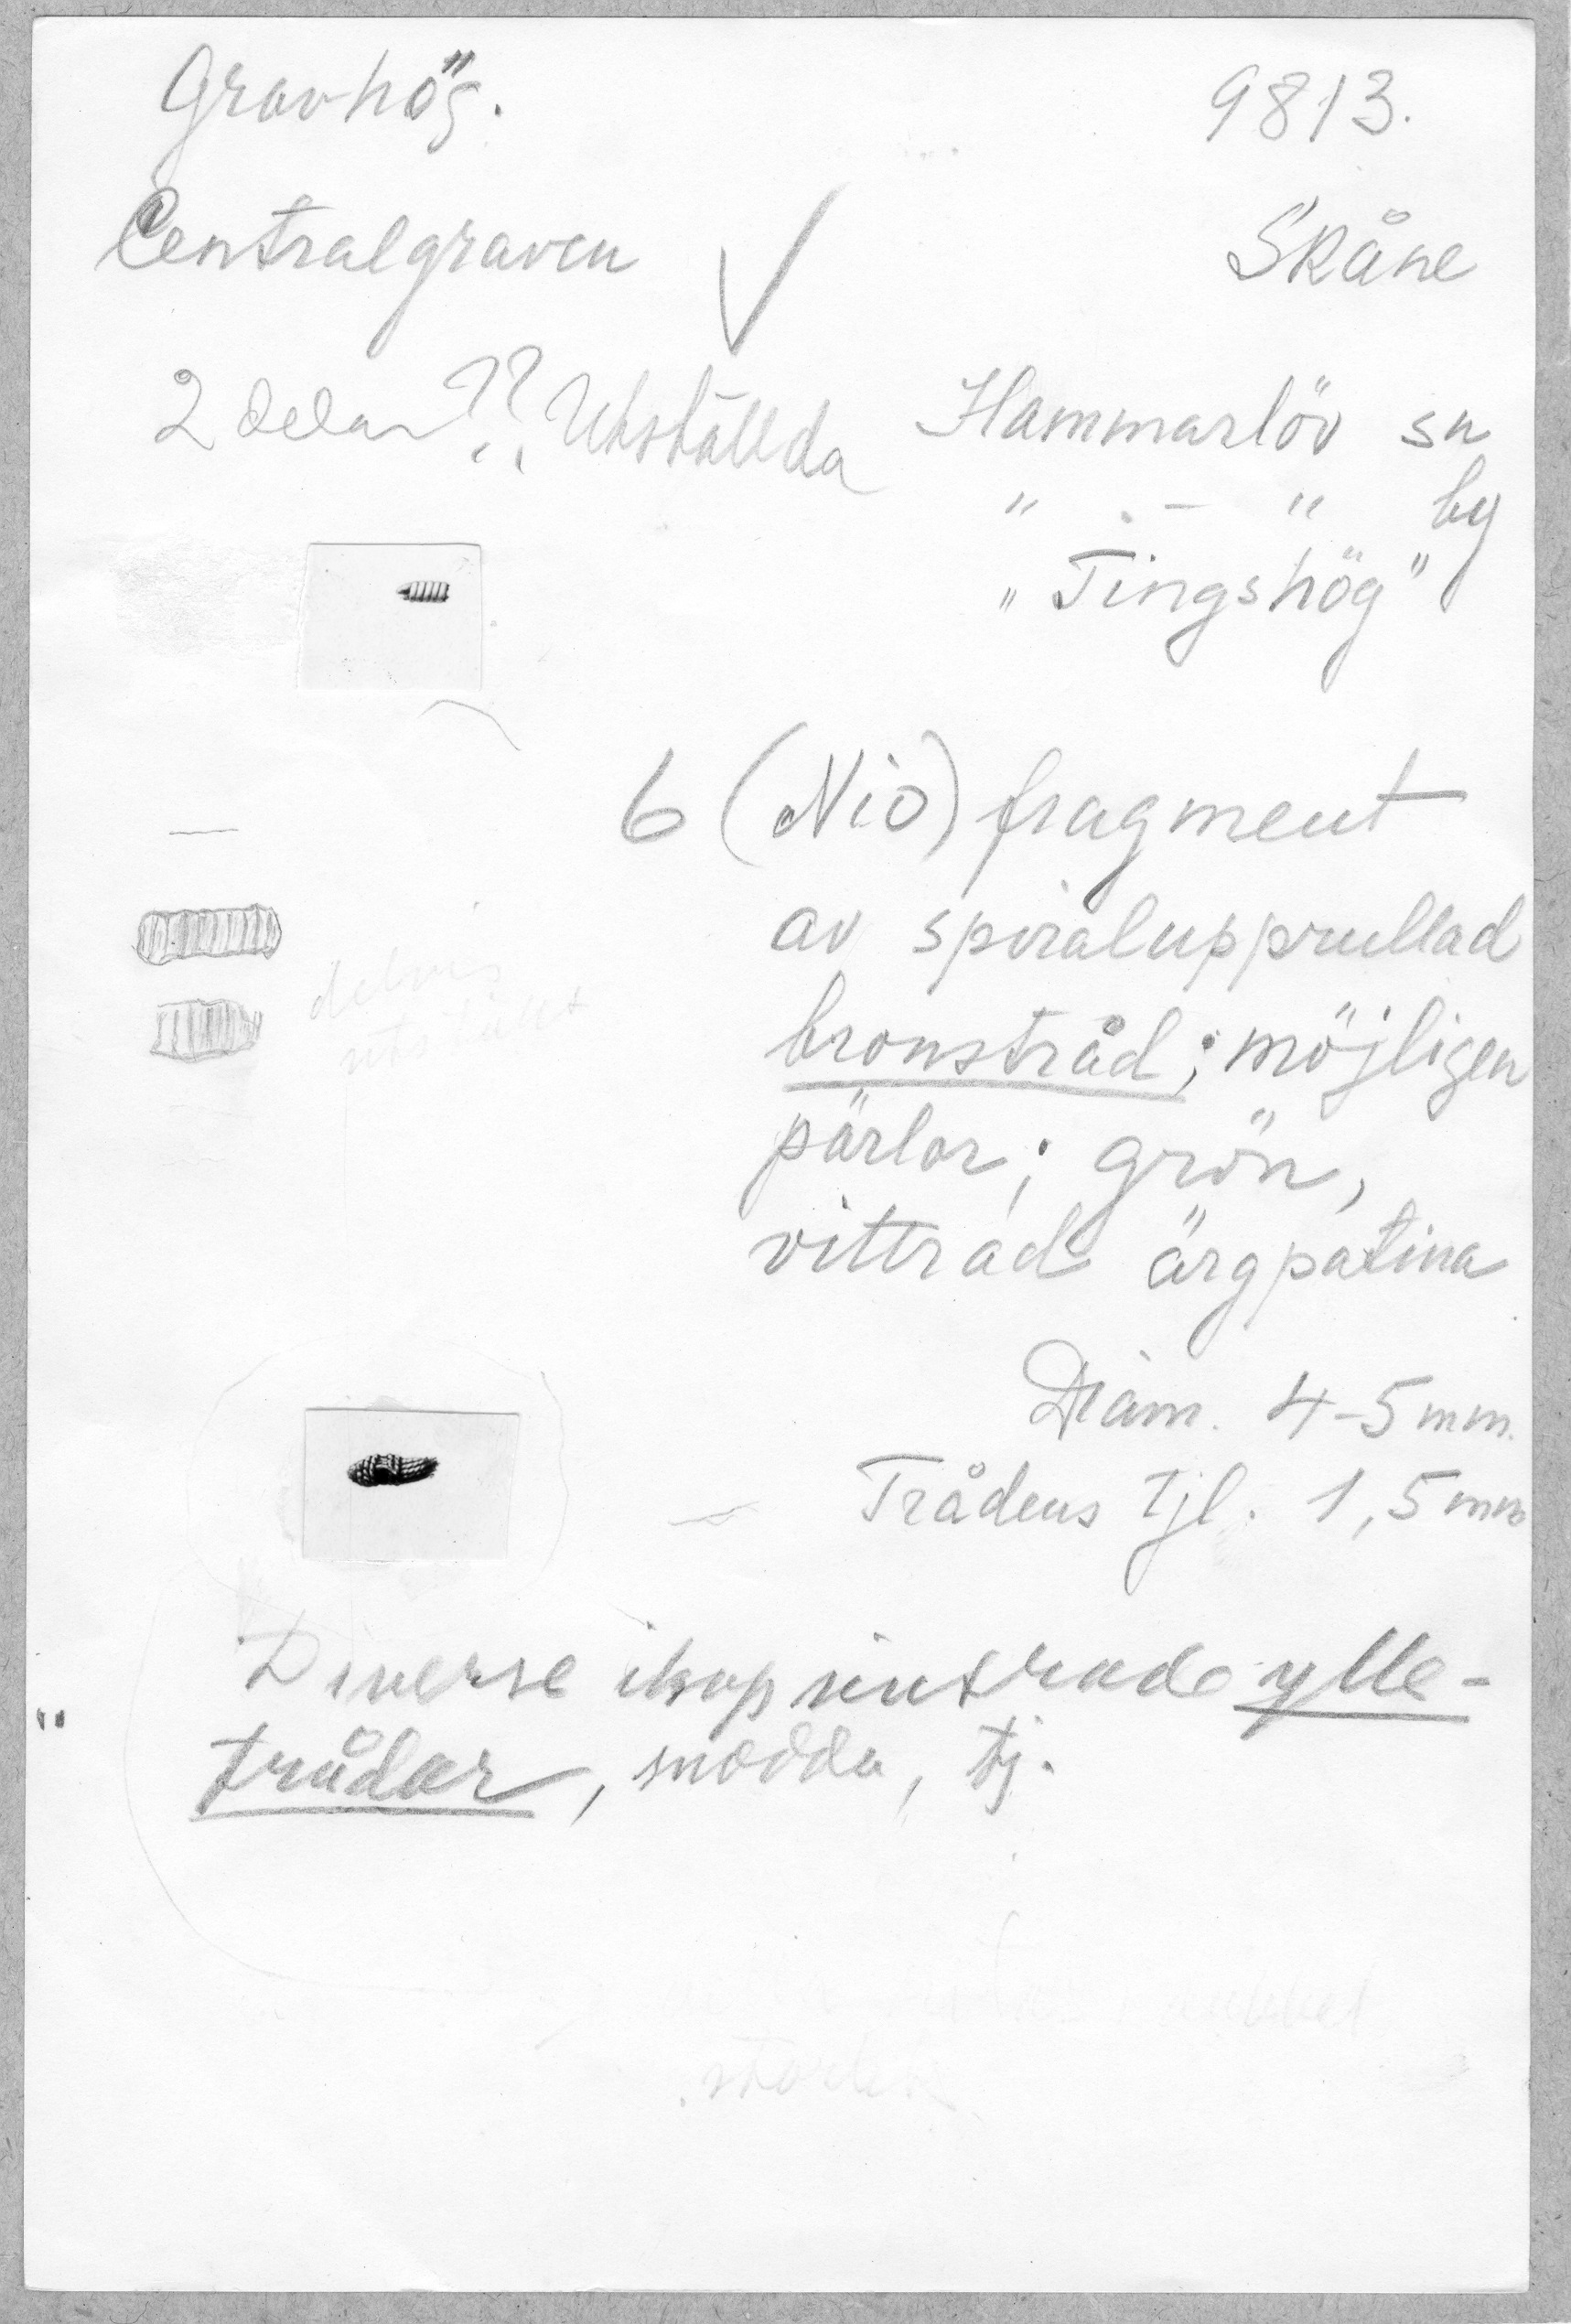 Gravhög.
9813.
Centralgraven
Skåne
2 delar?? Utställda
Hammarlöv sn
" - " by
"Tingshög"
6 (Nio) fragment
av spiralupprullad
bronstråd; möjligen
pärlor; grön,
vittrad ärgpatina
delvis
utställt
Diam. 4-5 mm.
Trådens tjl. 1,5 mm
Diverse ihopsintrade ylle-
trådar, snodda, tj.
storlek